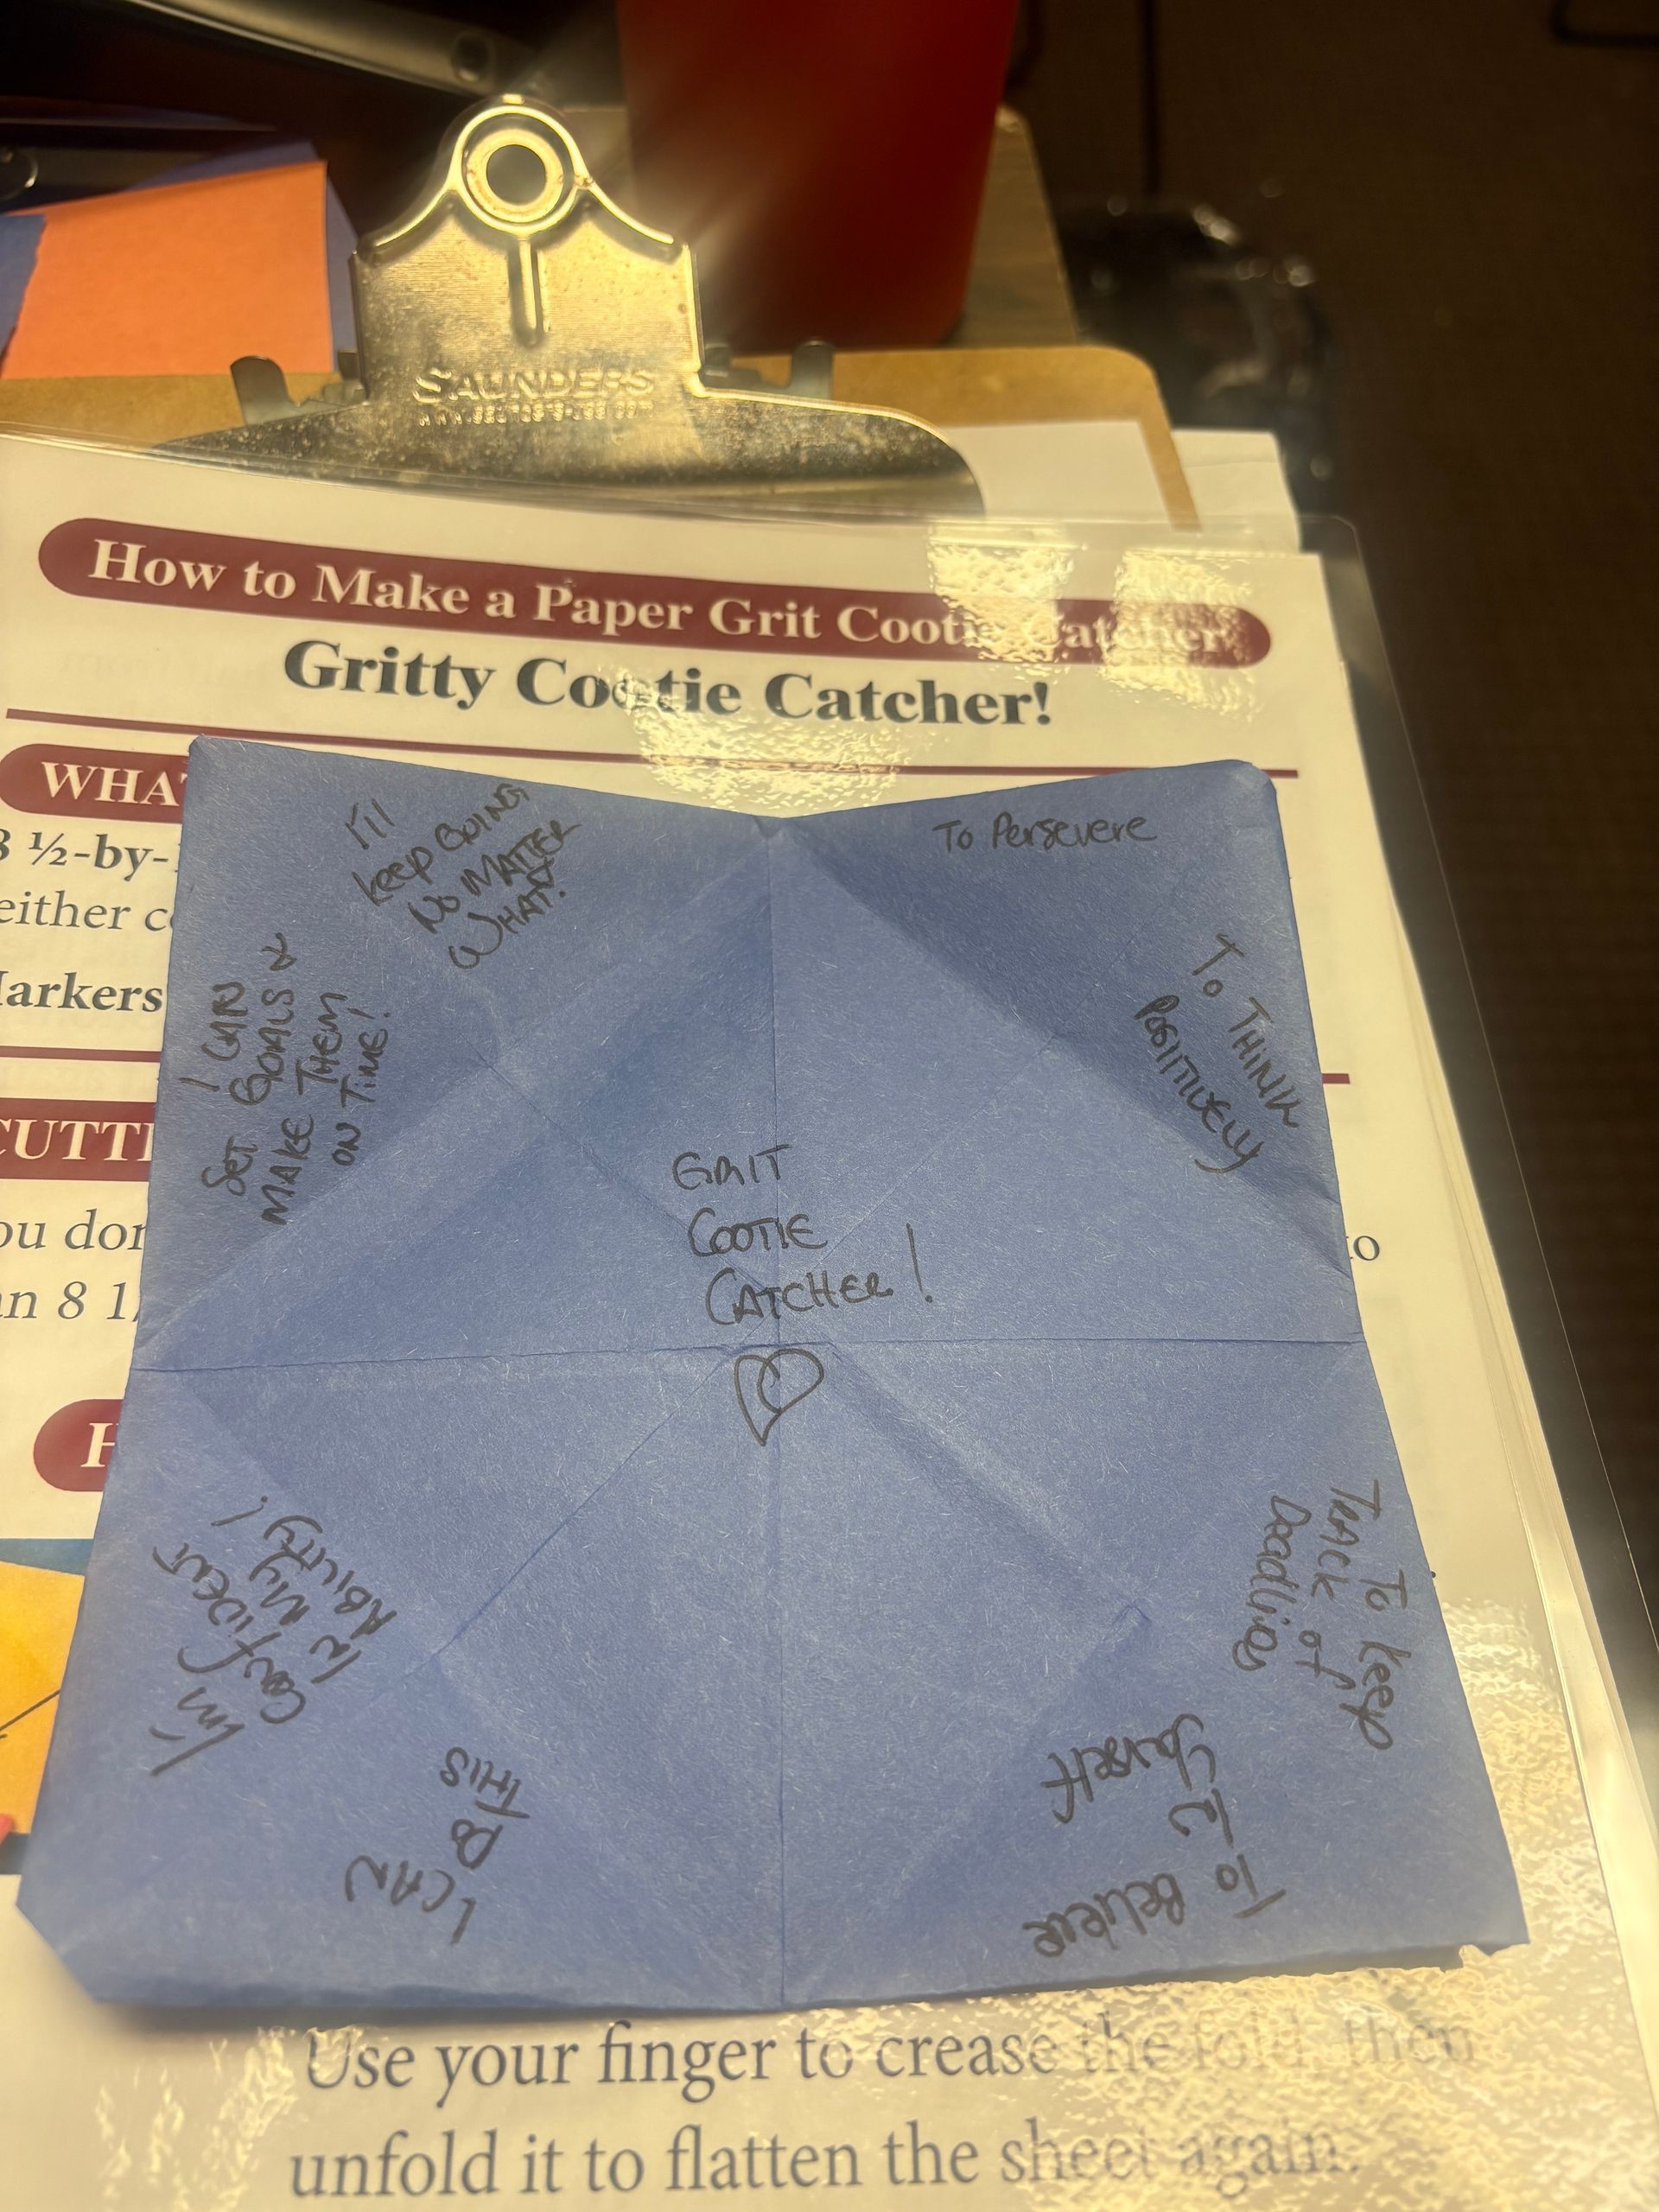 SAUNDERS
How to Make a Paper Grit Cootie Catcher
Gritty Cootie Catcher!
WHA
8 ½-by-
either c
Markers
CUTTI
ou don
an 8 1/
to
H
I'll
keep GOING
NO MATTER
WHAT!
To Persevere
I CAN
SET GOALS &
MAKE THEM
ON TIME!
To THINK
POSITIVELY
GRIT
COOTIE
CATCHER!
I'm
Confident
In My
ABILITY!
I CAN
DO
THIS
To Keep
TRACK of
Deadlines
To Believe
In
Yourself
Use your finger to crease the fold, then
unfold it to flatten the sheet again.